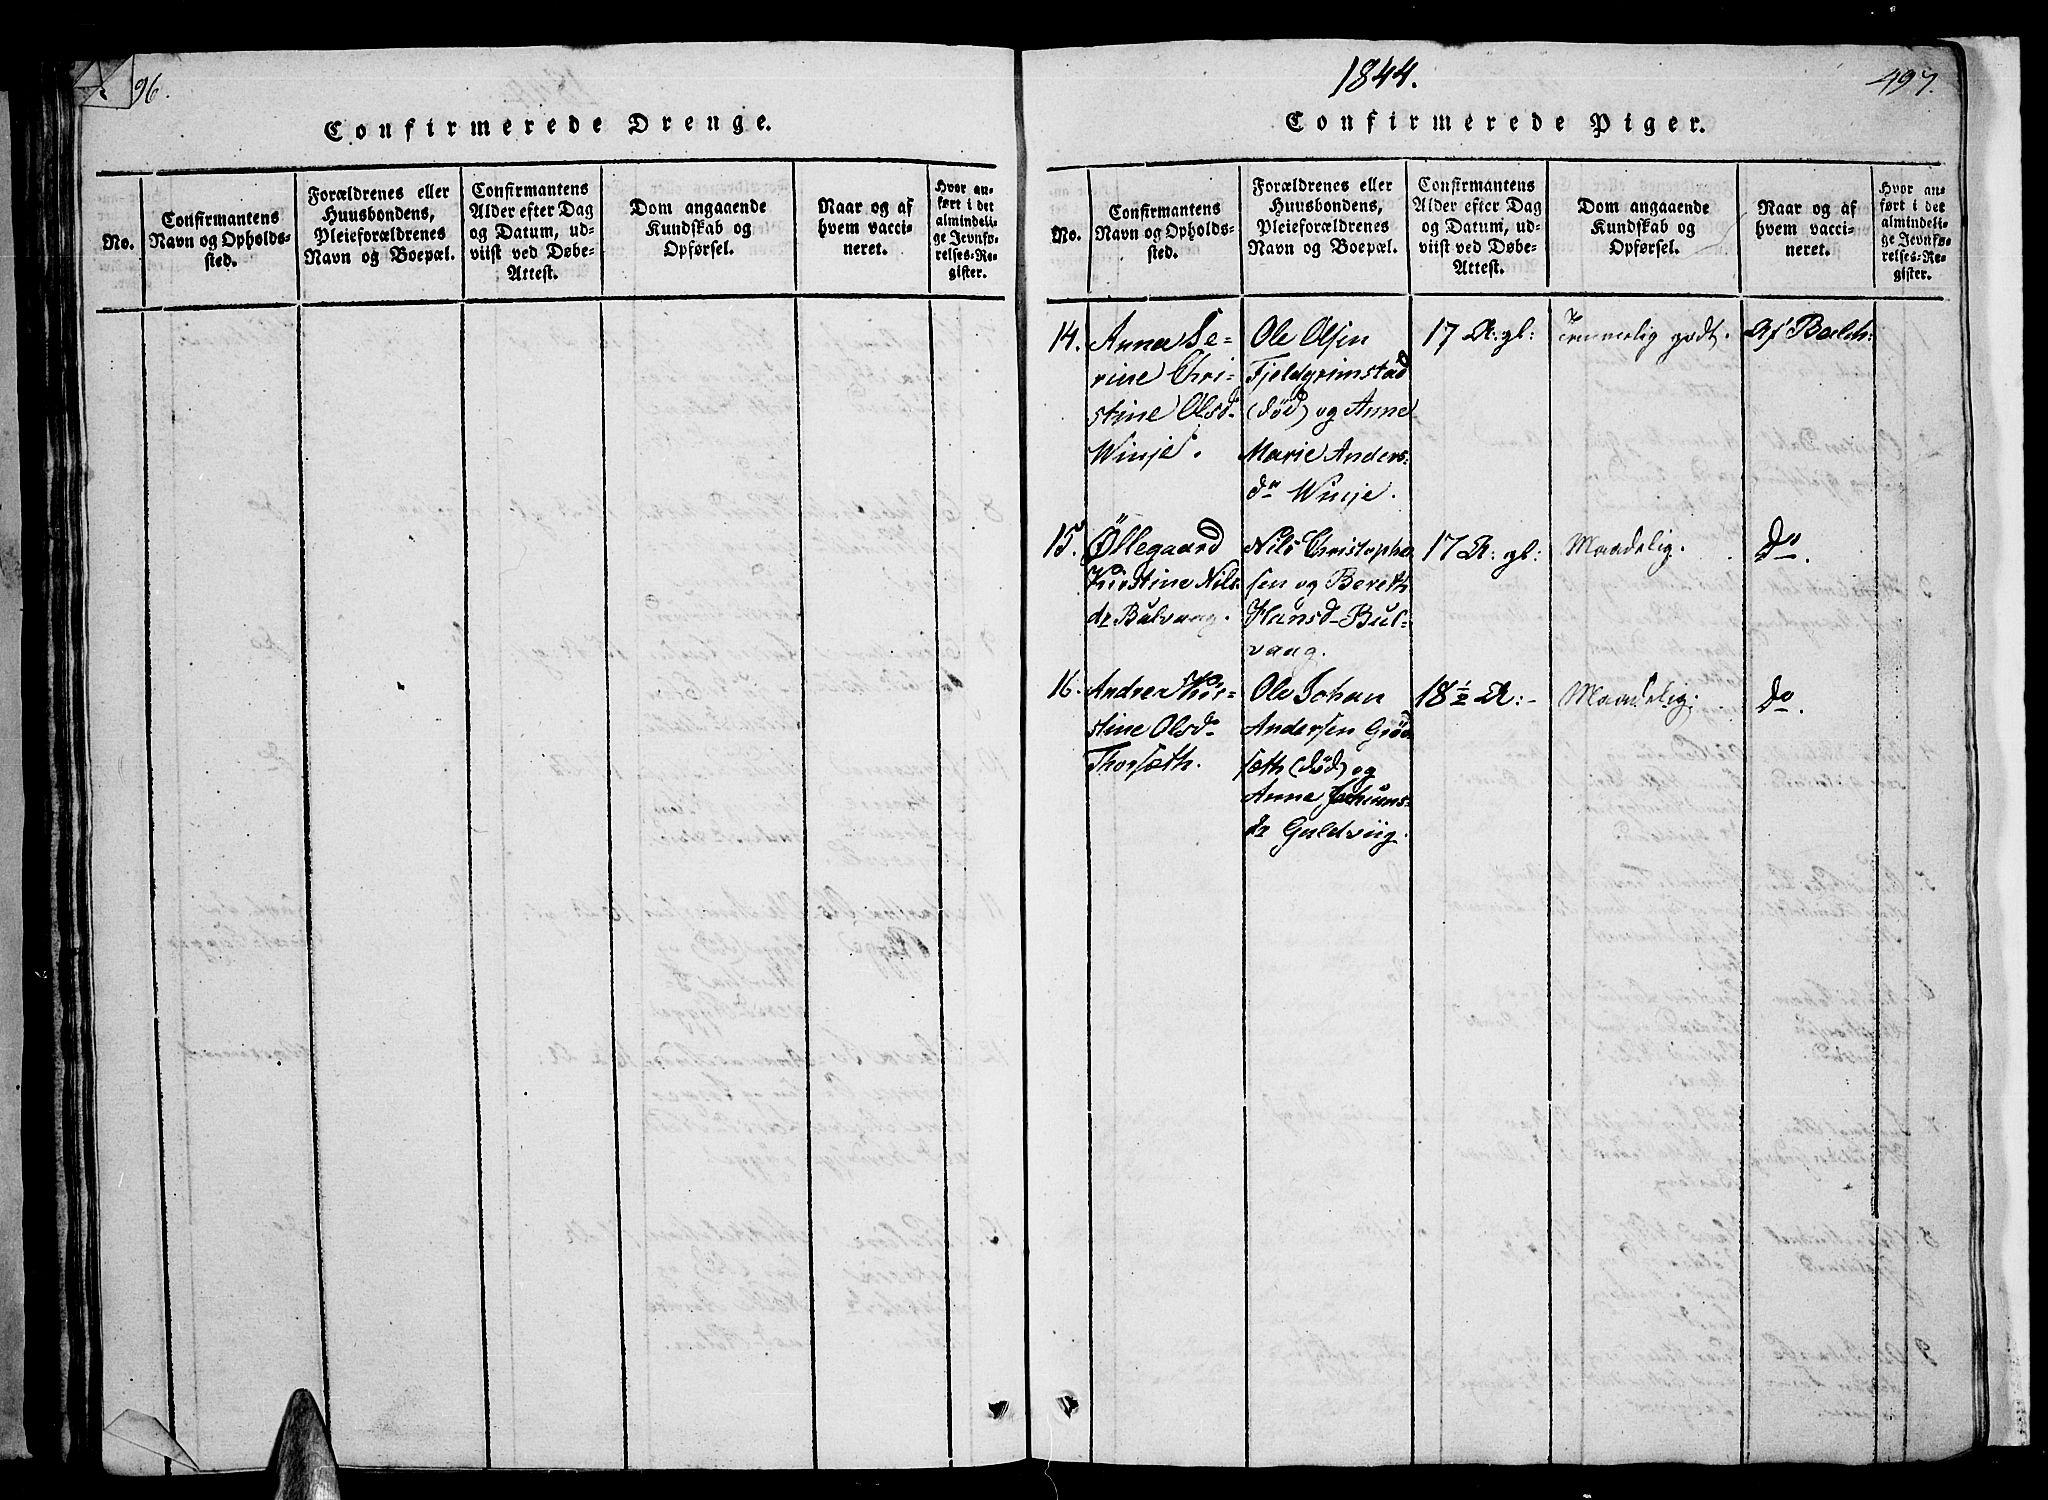 96.
Confirmerede Drenge.
No.
Confirmantens
Navn og Opholds-
sted.
Forældrenes eller
Huusbondens,
Pleieforældrenes
Navn og Boepæl.
Confirmantens
Alder efter Dag
og Datum, ud-
viist ved Døbe-
Attest.
Dom angaaende
Kundskab og
Opførsel.
Naar og af
hvem vacci-
neret.
Hvor an-
ført i det
almindeli-
ge Jevnfø-
relses-Re-
gister.
1844.
497.
Confirmerede Piger.
No.
Confirmantens
Navn og Opholds-
sted.
Forældrenes eller
Huusbondens,
Pleieforældrenes
Navn og Boepæl.
Confirmantens
Alder efter Dag
og Datum, ud-
viist ved Døbe-
Attest.
Dom angaaende
Kundskab og
Opførsel.
Naar og af
hvem vacci-
neret.
Hvor an-
ført i det
almindeli-
ge Jevnfø-
relses-Re-
gister.
14.
Anna Se-
rine Chri-
stine Olsd
Winje.
Ole Olsen
Fjeldgrimstad
(død) og Anne
Marie Anders-
dr Winje.
17 A: gl:
Temmelig godt.
Af Balch:
15.
Øllegaard
Kirstine Nils
dr Bulvaag.
Nils Christopher
sen og Bereth
Hansd Bul-
vaag.
17 A: gl:
Maadelig.
Do.
16.
Andrea Kir-
stine Olsdr
Thorsæth.
Ole Johan
Andersen Grød
sæth (død) og
Anne Johans-
dr Guldviig.
18 1/2 A:-
Maadelig.
Do.